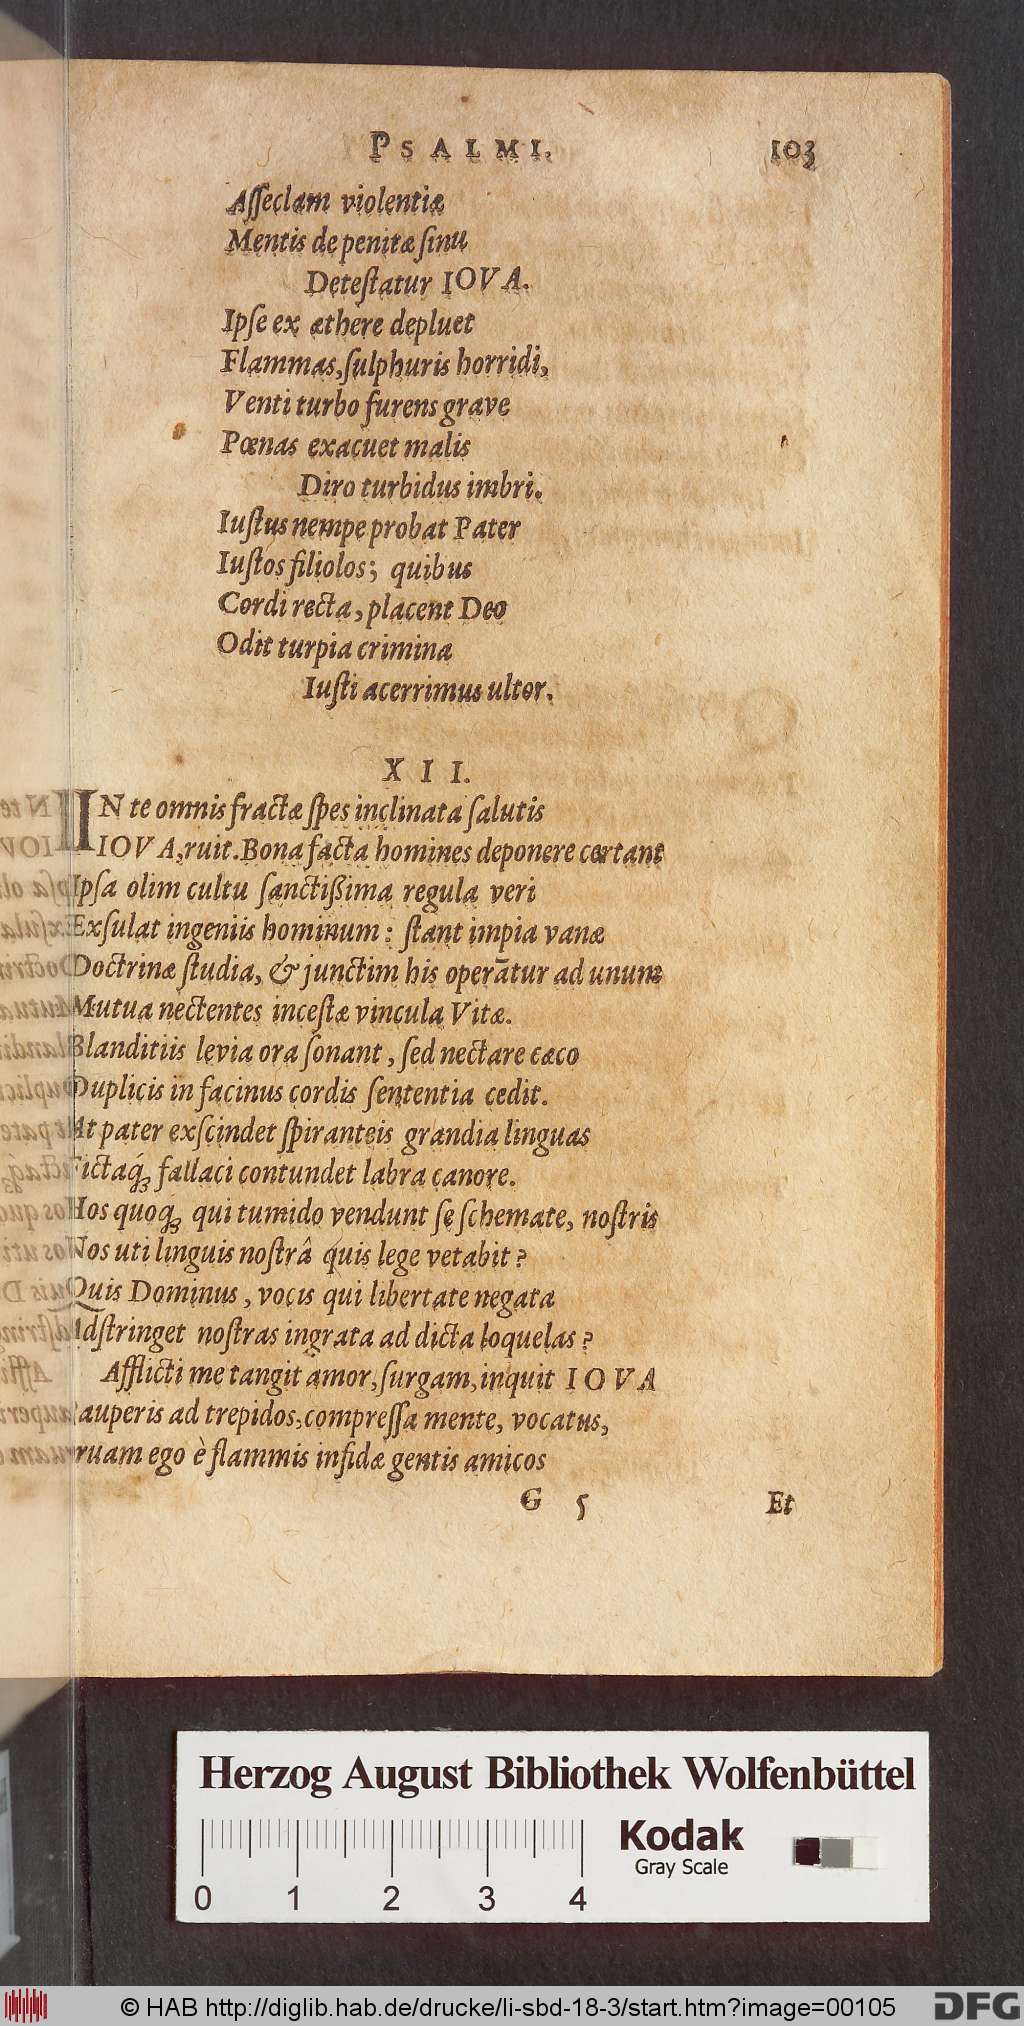 PSALMI. 103
Aſſeclam violentiæ
Mentis de penitæ ſinu
Deteſtatur IOVA.
Ipſe ex æthere depluet
Flammas, ſulphuris horridi,
Venti turbo furens grave
Pœnas exacuet malis
Diro turbidus imbri.
Iuſtus nempe probat Pater
Iuſtos filiolos; quibus
Cordi recta, placent Deo
Odit turpia crimina
Iuſti acerrimus ultor.
XII.
IN te omnis fractæ ſpes inclinata ſalutis
IOVA, ruit. Bona facta homines deponere certant
Ipſa olim cultu ſanctißima regula veri
Exſulat ingeniis hominum: ſtant impia vanæ
Doctrinæ ſtudia, & junctim his operātur ad unum
Mutua nectentes inceſtæ vincula Vitæ.
Blanditiis levia ora ſonant, ſed nectare cæco
Duplicis in facinus cordis ſententia cedit.
At pater exſcindet ſpiranteis grandia linguas
Fictaq́; fallaci contundet labra canore.
Hos quoq́; qui tumido vendunt ſe ſchemate, noſtris
Nos uti linguis noſtrâ quis lege vetabit?
Quis Dominus, vocis qui libertate negata
Adſtringet noſtras ingrata ad dicta loquelas?
Afflicti me tangit amor, ſurgam, inquit IOVA
auperis ad trepidos, compreſſa mente, vocatus,
ruam ego è flammis infidæ gentis amicos
G 5 Et
Herzog August Bibliothek Wolfenbüttel
Kodak
Gray Scale
0 1 2 3 4
© HAB http://diglib.hab.de/drucke/li-sbd-18-3/start.htm?image=00105
DFG